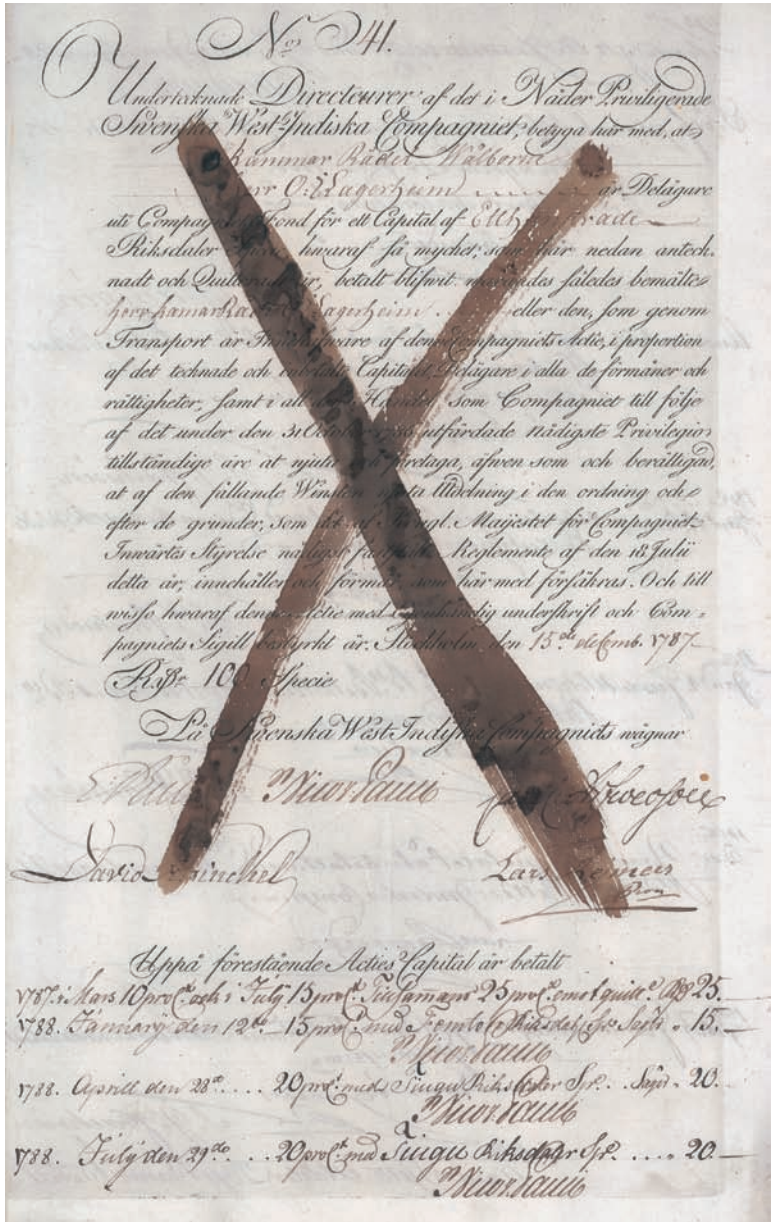 Nos 341.
Undertecknade Directeurer af det i Nåder Priviligerade
Swenska West Indiska Compagniet, betyga här med, at
Kammar Rådet Wälborne
Herr O: Lagerheim är Delägare
uti Compagniets Fond för ett Capital af Ett hundrade
Riksdaler Specie, hwaraf så mycket, som här nedan anteck-
nadt och Quitteradt är, betalt blifwit
Lagerheim eller den, som genom
Transport är Innehafware af denna Compagniets Actie, i proportion
af det tecknade och inbetalte Capitalet, Delägare i alla de förmåner och
rättigheter, samt i all den Handel, som Compagniet till följe
af det under den 31 October 1786 utfärdade nådigste Privilegio
tillständige äre at njuta och företaga, äfwen som och berättigad,
at af den fallande Winsten njuta Utdelning i den ordning och
efter de grunder, som det af Kongl. Majestet för Compagniets
Inwärtes Styrelse nådigst fastställte Reglemente af den 18 Julii
detta år, innehåller och förmår, som här med försäkras. Och till
wisso hwaraf denna Actie med egenhändig underskrift och Com-
pagniets Sigill bestyrkt är. Stockholm, den 15de decemb. 1787
Rdr 100 Specie
På Swenska West Indiska Compagniets wägnar
David
Lars Reimers
Uppå förestående Acties Capital är betalt
1787. i Mars 10 proCt. och i July 15 proCt. Tilsamans 25 proCt. emot quitt. 25.
1788. January den 12te 15 proCt. med Femton Riksdaler Spr. 15.
1788. Aprill den 28de .... 20 proCt. med Tiugu Riksdaler Spr. .. 20.
1788. July den 29de .. 20 proCt. med Tiugu Riksdaler Spr. .... 20